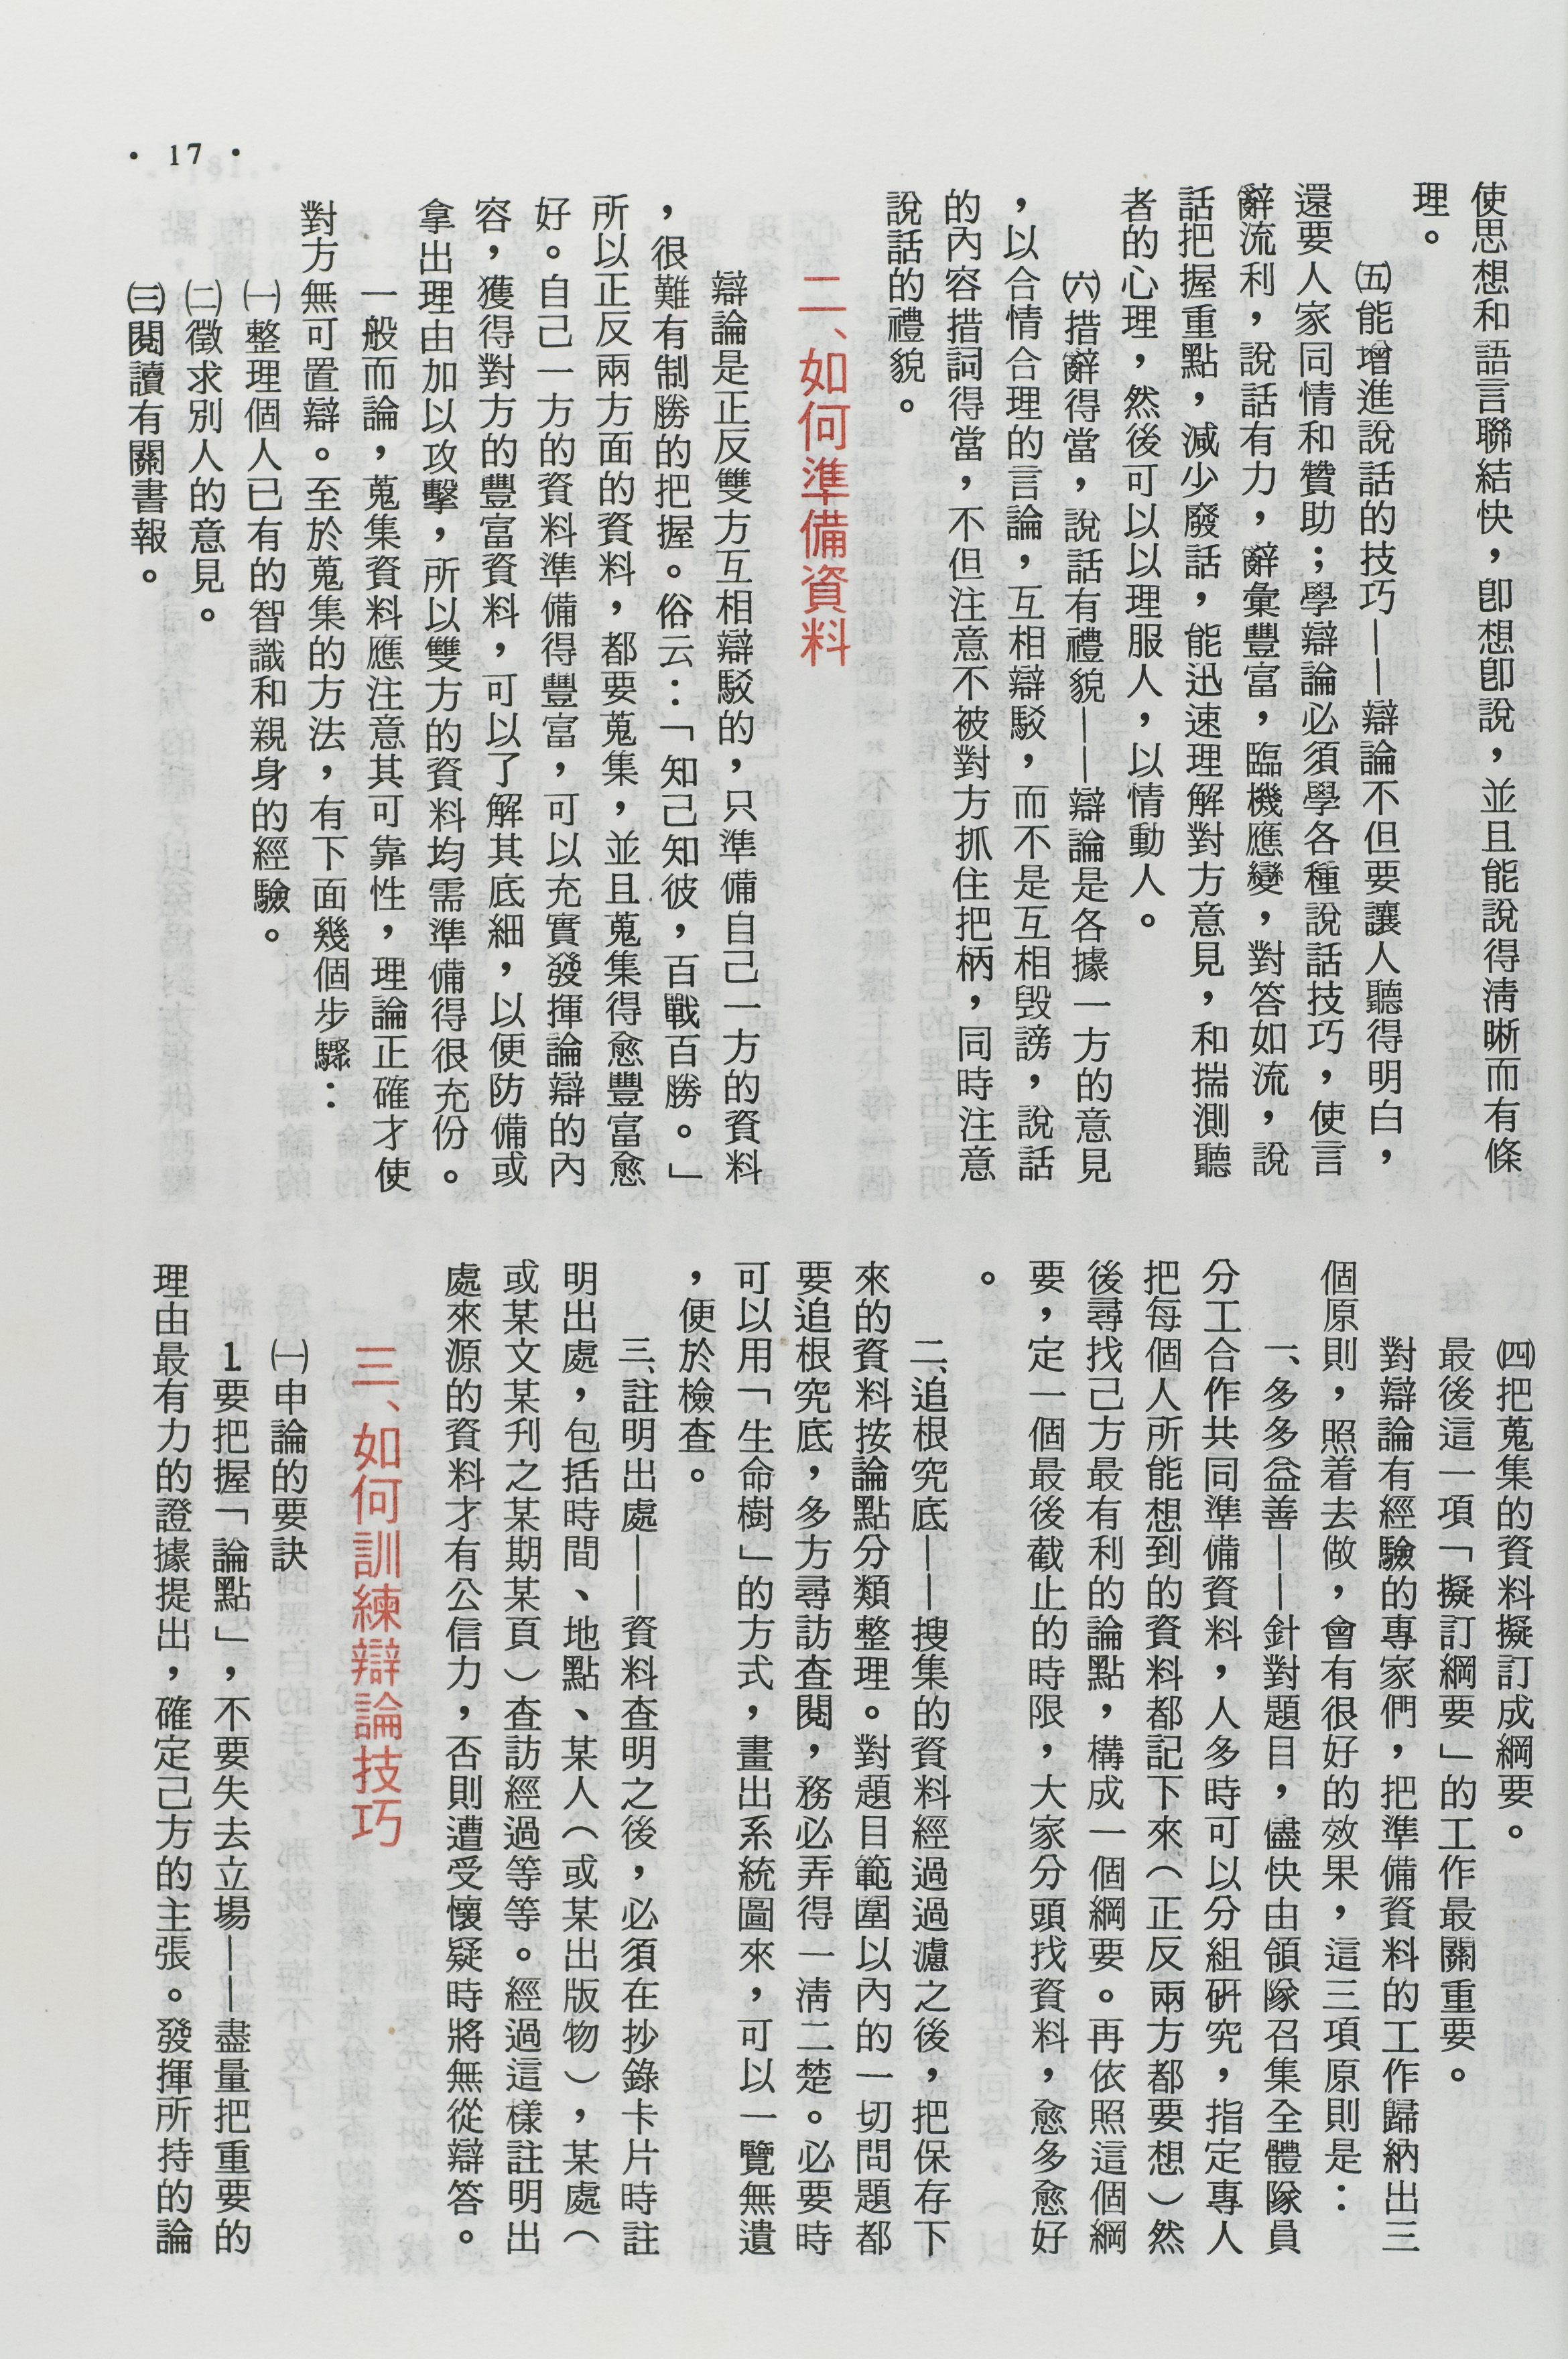 使思想和語言聯結快，卽想卽說，並且能說得淸晰而有條
理。
㈤能增進說話的技巧——辯論不但要讓人聽得明白，
還要人家同情和贊助；學辯論必須學各種說話技巧，使言
辭流利，說話有力，辭彙豐富，臨機應變，對答如流，說
話把握重點，減少廢話，能迅速理解對方意見，和揣測聽
者的心理，然後可以以理服人，以情動人。
㈥措辭得當，說話有禮貌——辯論是各據一方的意見
，以合情合理的言論，互相辯駁，而不是互相毀謗，說話
的內容措詞得當，不但注意不被對方抓住把柄，同時注意
說話的禮貌。
二、如何準備資料
辯論是正反雙方互相辯駁的，只準備自己一方的資料
，很難有制勝的把握。俗云：「知己知彼，百戰百勝。」
所以正反兩方面的資料，都要蒐集，並且蒐集得愈豐富愈
好。自己一方的資料準備得豐富，可以充實發揮論辯的內
容，獲得對方的豐富資料，可以了解其底細，以便防備或
拿出理由加以攻擊，所以雙方的資料均需準備得很充份。
一般而論，蒐集資料應注意其可靠性，理論正確才使
對方無可置辯。至於蒐集的方法，有下面幾個步驟：
㈠整理個人已有的智識和親身的經驗。
㈡徵求別人的意見。
㈢閱讀有關書報。
• 17 •
㈣把蒐集的資料擬訂成綱要。
最後這一項「擬訂綱要」的工作最關重要。
對辯論有經驗的專家們，把準備資料的工作歸納出三
個原則，照着去做，會有很好的效果，這三項原則是：
一、多多益善——針對題目，儘快由領隊召集全體隊員
分工合作共同準備資料，人多時可以分組硏究，指定專人
把每個人所能想到的資料都記下來（正反兩方都要想）然
後尋找己方最有利的論點，構成一個綱要。再依照這個綱
要，定一個最後截止的時限，大家分頭找資料，愈多愈好
。
二、追根究底——搜集的資料經過過濾之後，把保存下
來的資料按論點分類整理。對題目範圍以內的一切問題都
要追根究底，多方尋訪查閱，務必弄得一淸二楚。必要時
可以用「生命樹」的方式，畫出系統圖來，可以一覽無遺
，便於檢查。
三、註明出處——資料查明之後，必須在抄錄卡片時註
明出處，包括時間、地點、某人（或某出版物），某處（
或某文某刋之某期某頁）查訪經過等等。經過這樣註明出
處來源的資料才有公信力，否則遭受懷疑時將無從辯答。
三、如何訓練辯論技巧
㈠申論的要訣
1要把握「論點」，不要失去立場——盡量把重要的
理由最有力的證據提出，確定己方的主張。發揮所持的論